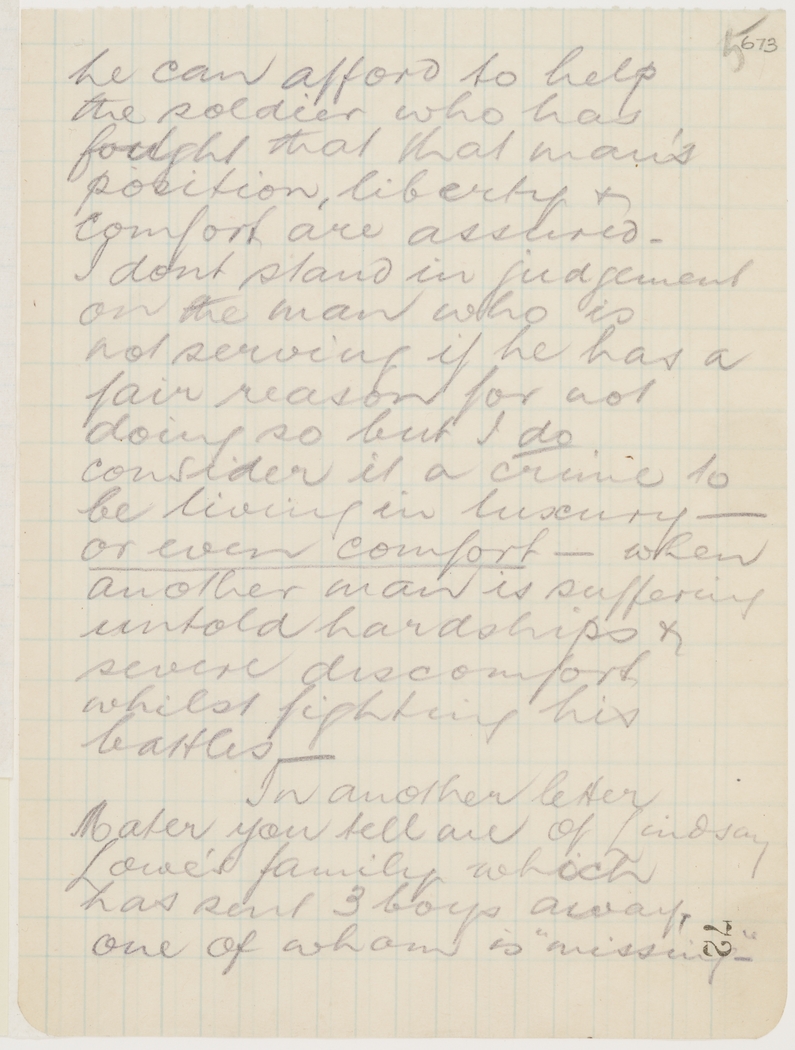 5
673
he can afford to help
the soldier who has
fought that that man's
position, liberty &
comfort are assured -
I dont stand in judgement
on the man who is
not serving if he has a
fair reason for not
doing so but I do
consider it a crime to
be living in luxury —
or even comfort — when
another man is suffering
untold hardships &
severe discomfort
whilst fighting his
battles —
In another letter
Mater you tell me of Lindsay
Lowe's family which
has sent 3 boys away,
one of whom is "missing" -
72